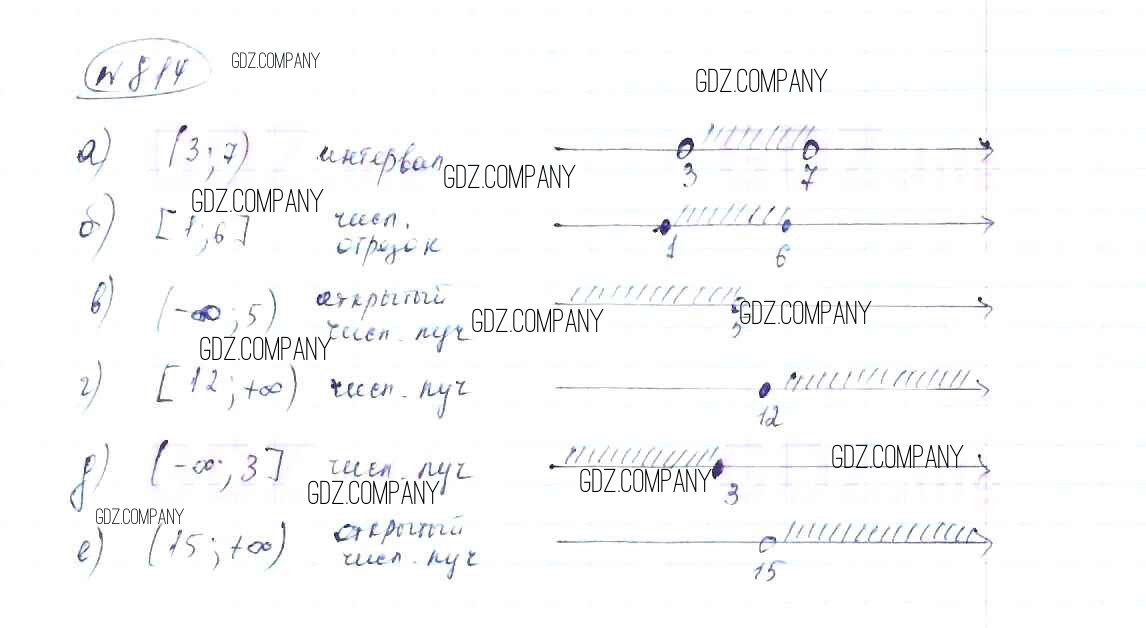 № 814
GDZ.COMPANY
GDZ.COMPANY
а) (3; 7) интервал
3 7
GDZ.COMPANY
GDZ.COMPANY
б) [1; 6] числ.
отрезок
1 6
в) (-∞; 5) открытый
числ. луч
5
GDZ.COMPANY
GDZ.COMPANY
GDZ.COMPANY
г) [12; +∞) числ. луч
12
д) (-∞; 3] числ. луч
3
GDZ.COMPANY
GDZ.COMPANY
GDZ.COMPANY
GDZ.COMPANY
е) (15; +∞) открытый
числ. луч
15